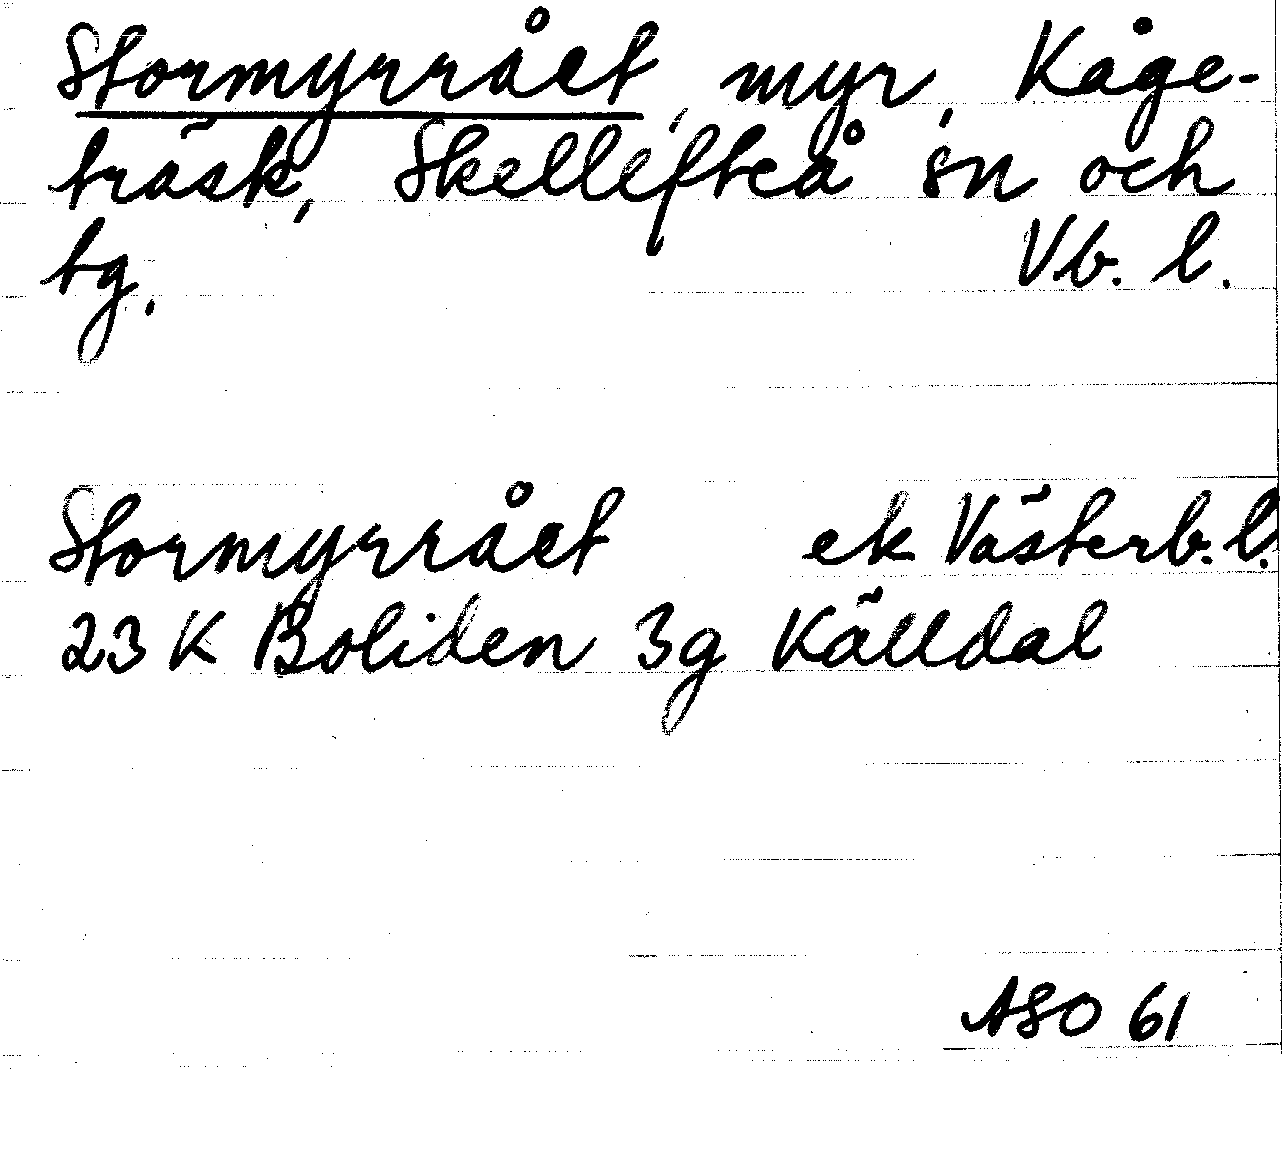 Stormyrrået, myr, Kåge-
träsk, Skellefteå sn och
tg. Vb. l.
Stormyrrået ek Västerb. l.
23 K Boliden 3g Källdal
ASO 61